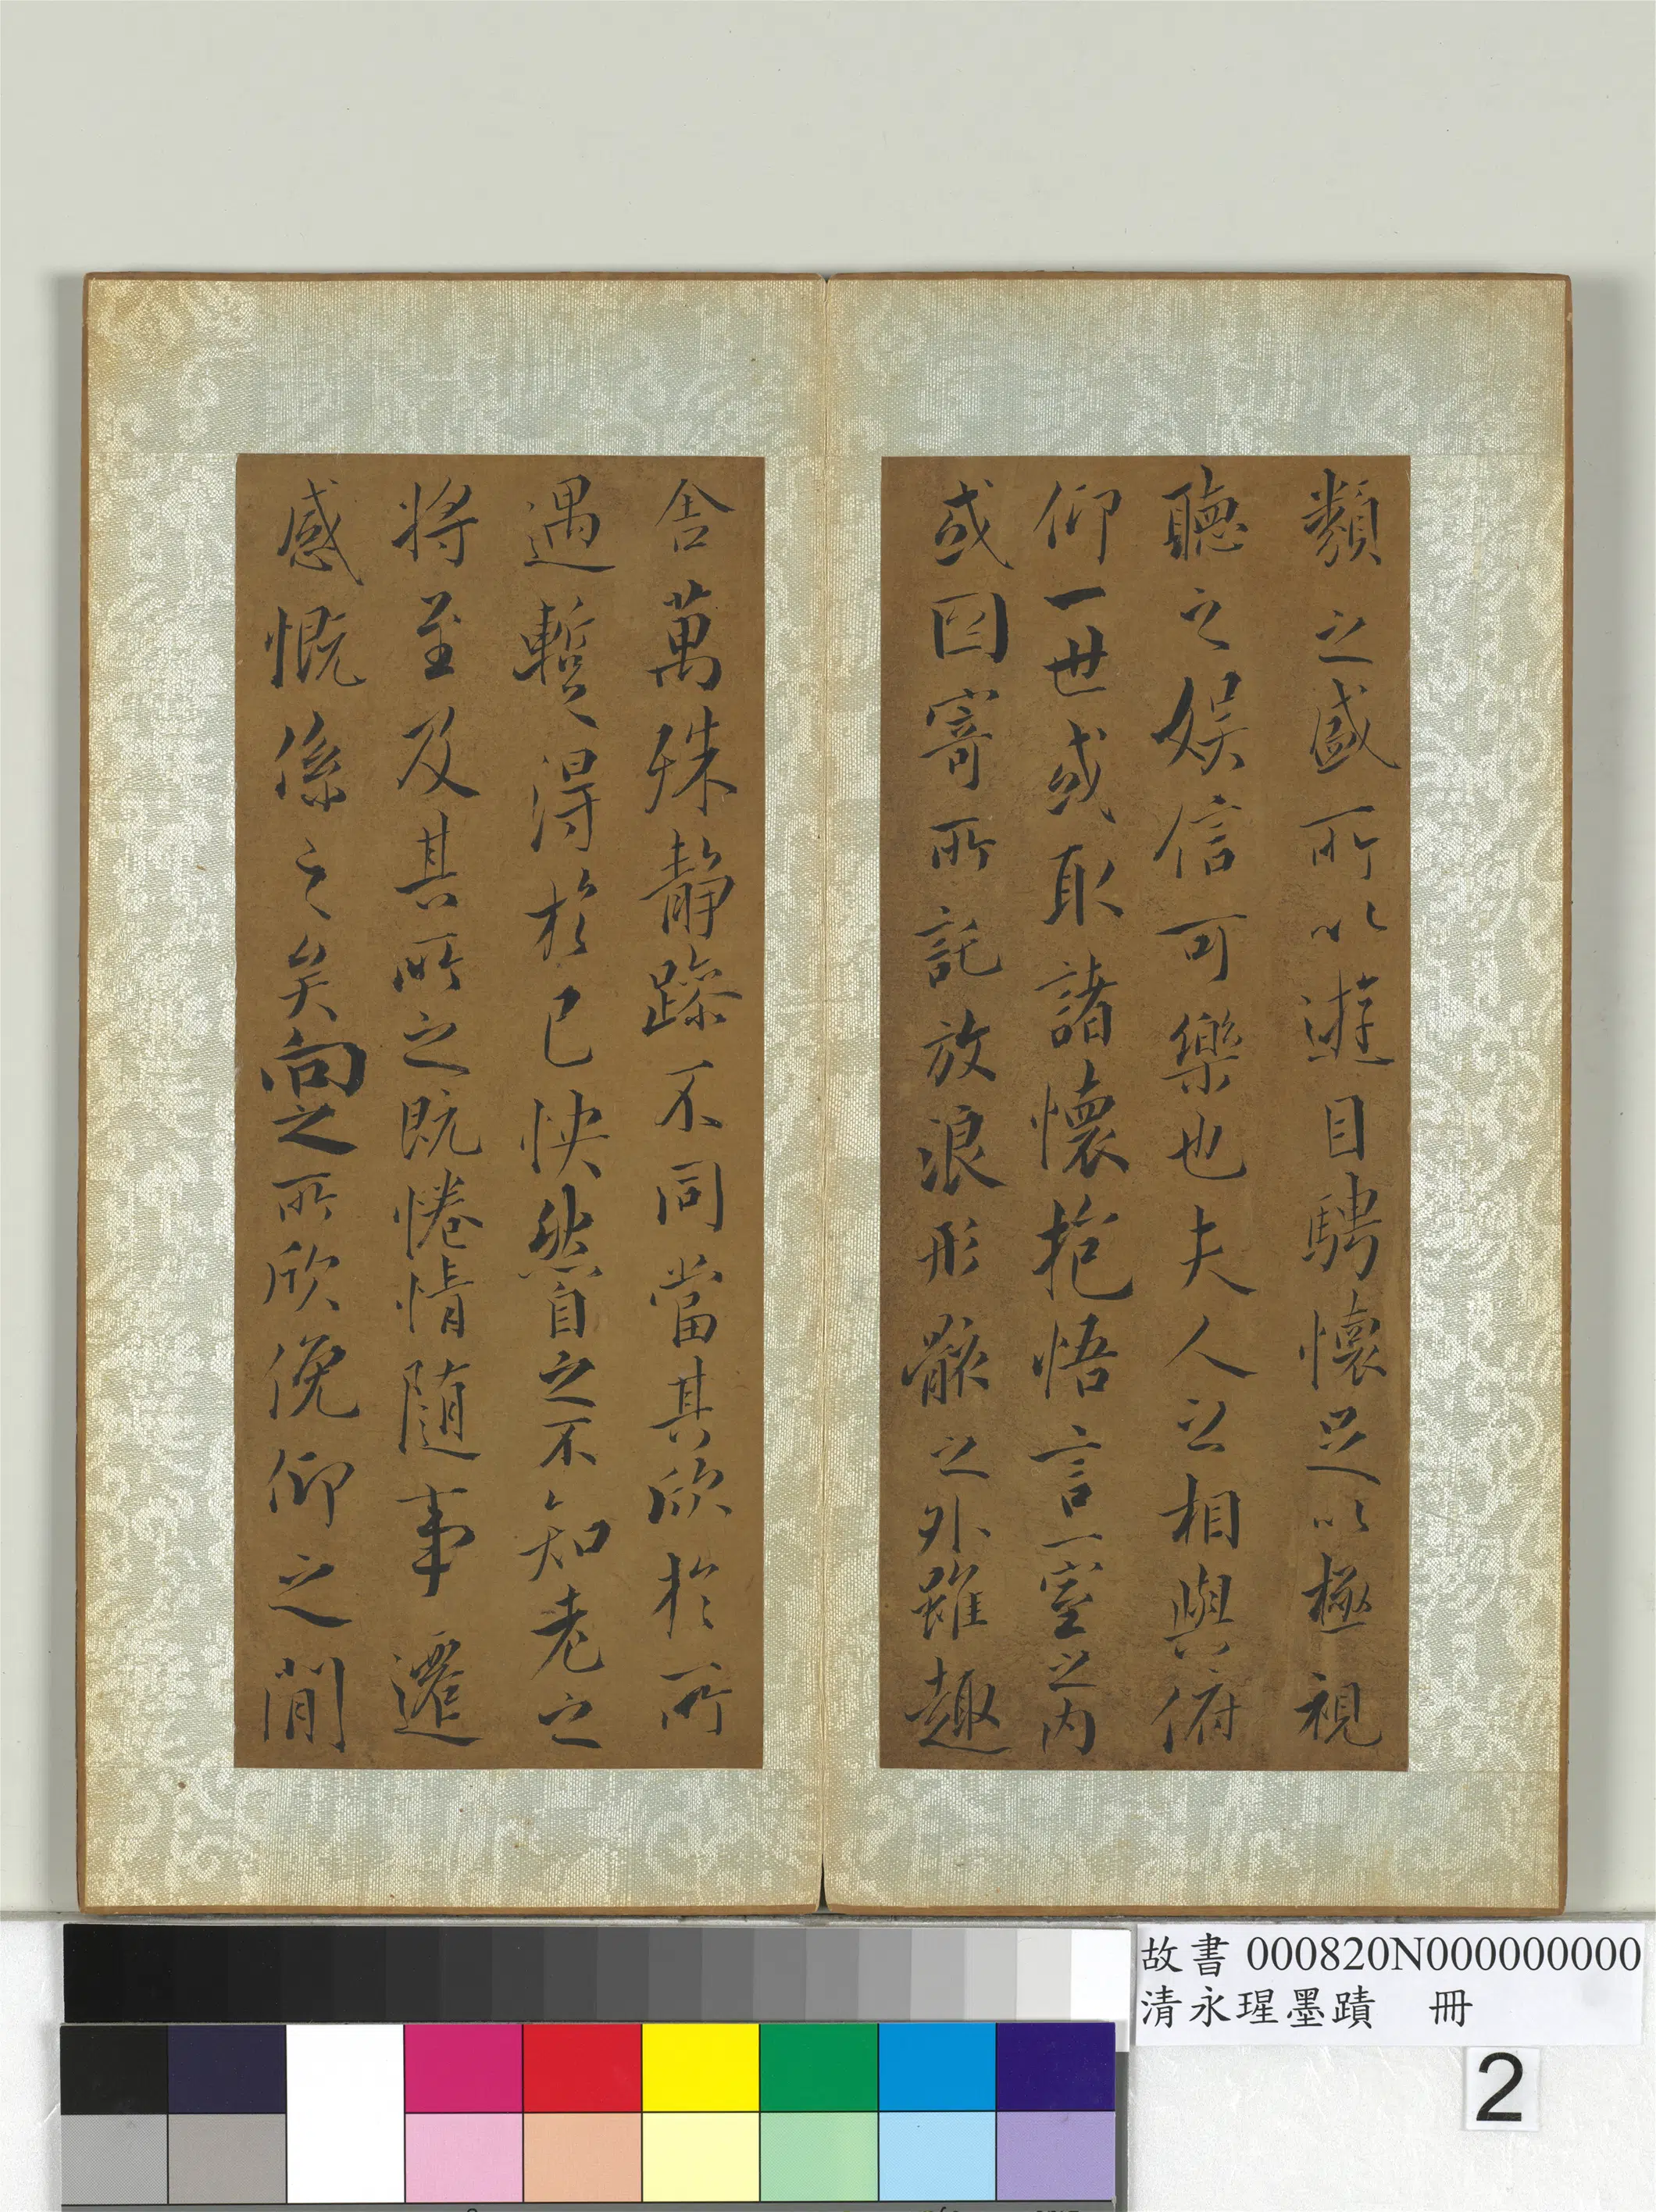 類之盛所以遊目騁懷足以極視
聽之娛信可樂也夫人之相與俯
仰一世或取諸懷抱悟言一室之內
或因寄所託放浪形骸之外雖趣
舍萬殊靜躁不同當其欣於所
遇暫得於己快然自足不知老之
將至及其所之既惓情隨事遷
感慨係之矣向之所欣俛仰之閒
故書 000820N000000000
清永瑆墨蹟 冊
2